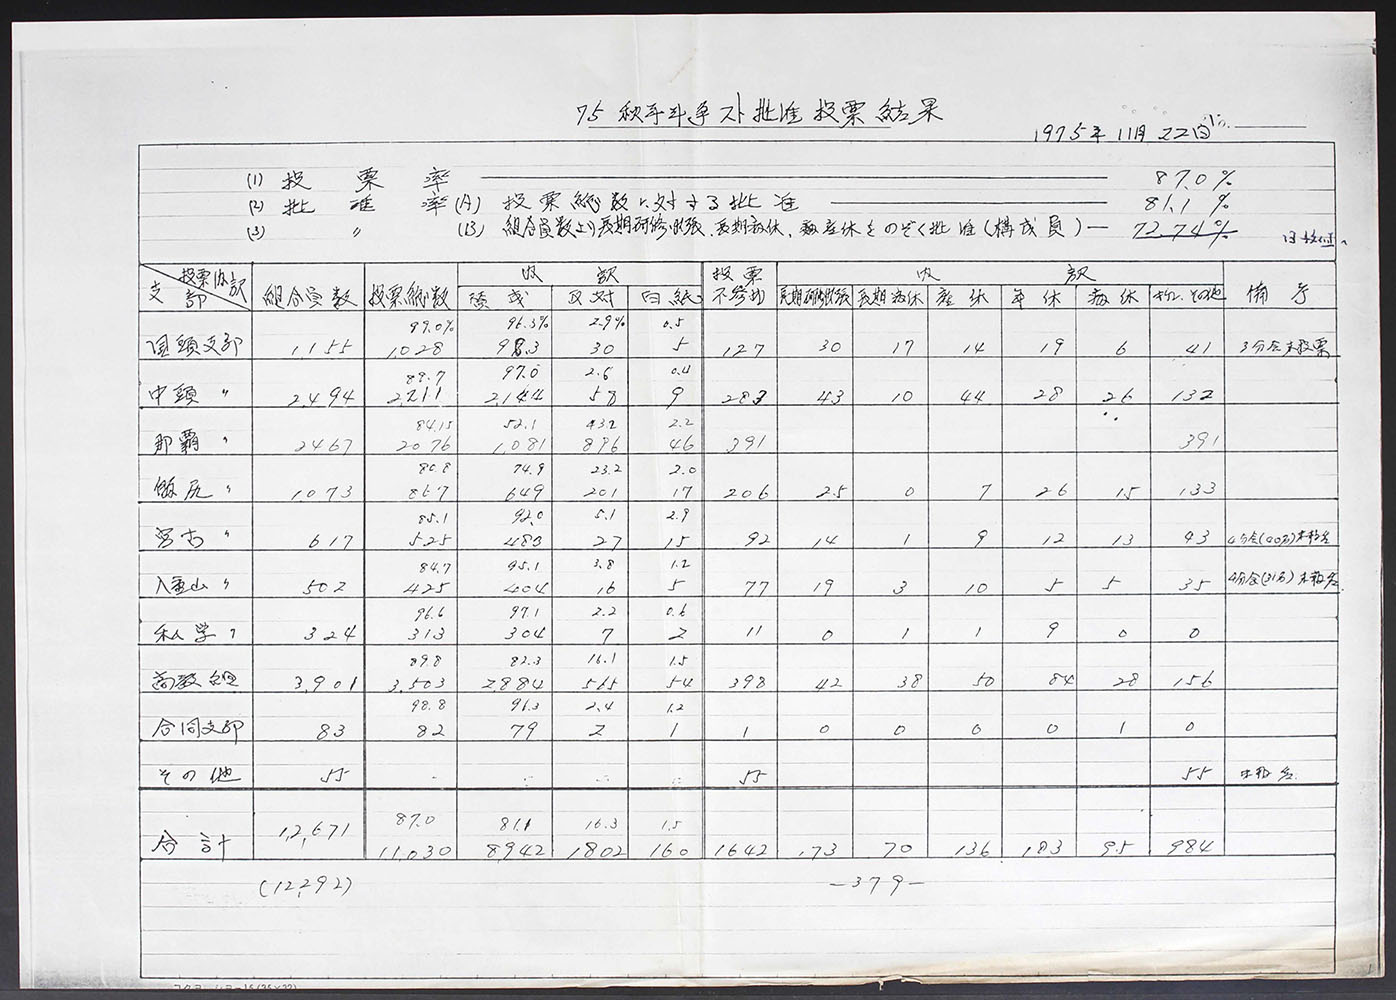 75 秋季斗争スト批准投票結果
1975年 11月 22日
(1) 投票率 87.0%
(2) 批准率 (A) 投票総数に対する批准 81.1%
(3) 〃 (B) 組合員数より長期研修出張、長期病休、産休をのぞく批准(構成員) 72.74%
投票内訳 内訳 投票 内訳
支部 組合員数 投票総数 賛成 反対 白紙 不参加 長期研修出張 長期病休 産休 年休 病休 その他 備考
89.0% 96.3% 2.9% 0.5
国頭支部 1155 1028 983 30 5 127 30 17 14 19 6 41 3分会未投票
88.7 97.0 2.6 0.4
中頭 〃 2,494 2,211 2,144 58 9 283 43 10 44 28 26 132
84.15 52.1 43.2 2.2
那覇 〃 2467 2076 1,081 896 46 391 391
80.8 74.9 23.2 2.0
島尻 〃 1073 867 649 201 17 206 25 0 7 26 15 133
85.1 92.0 5.1 2.9
宮古 〃 617 525 483 27 15 92 14 1 9 12 13 43
84.7 95.1 3.8 1.2
八重山 〃 502 425 404 16 5 77 19 3 10 5 5 35
96.6 97.1 2.2 0.6
私学 〃 324 313 304 7 2 11 0 1 1 9 0 0
89.8 82.3 16.1 1.5
高教組 3,901 3,503 2884 565 54 398 42 38 50 84 28 156
98.8 96.3 2.4 1.2
合同支部 83 82 79 2 1 1 0 0 0 0 1 0
その他 55 55 55
87.0 81.1 16.3 1.5
合計 12,671 11,030 8942 1802 160 1642 173 70 136 183 95 984
(12,292) -379-